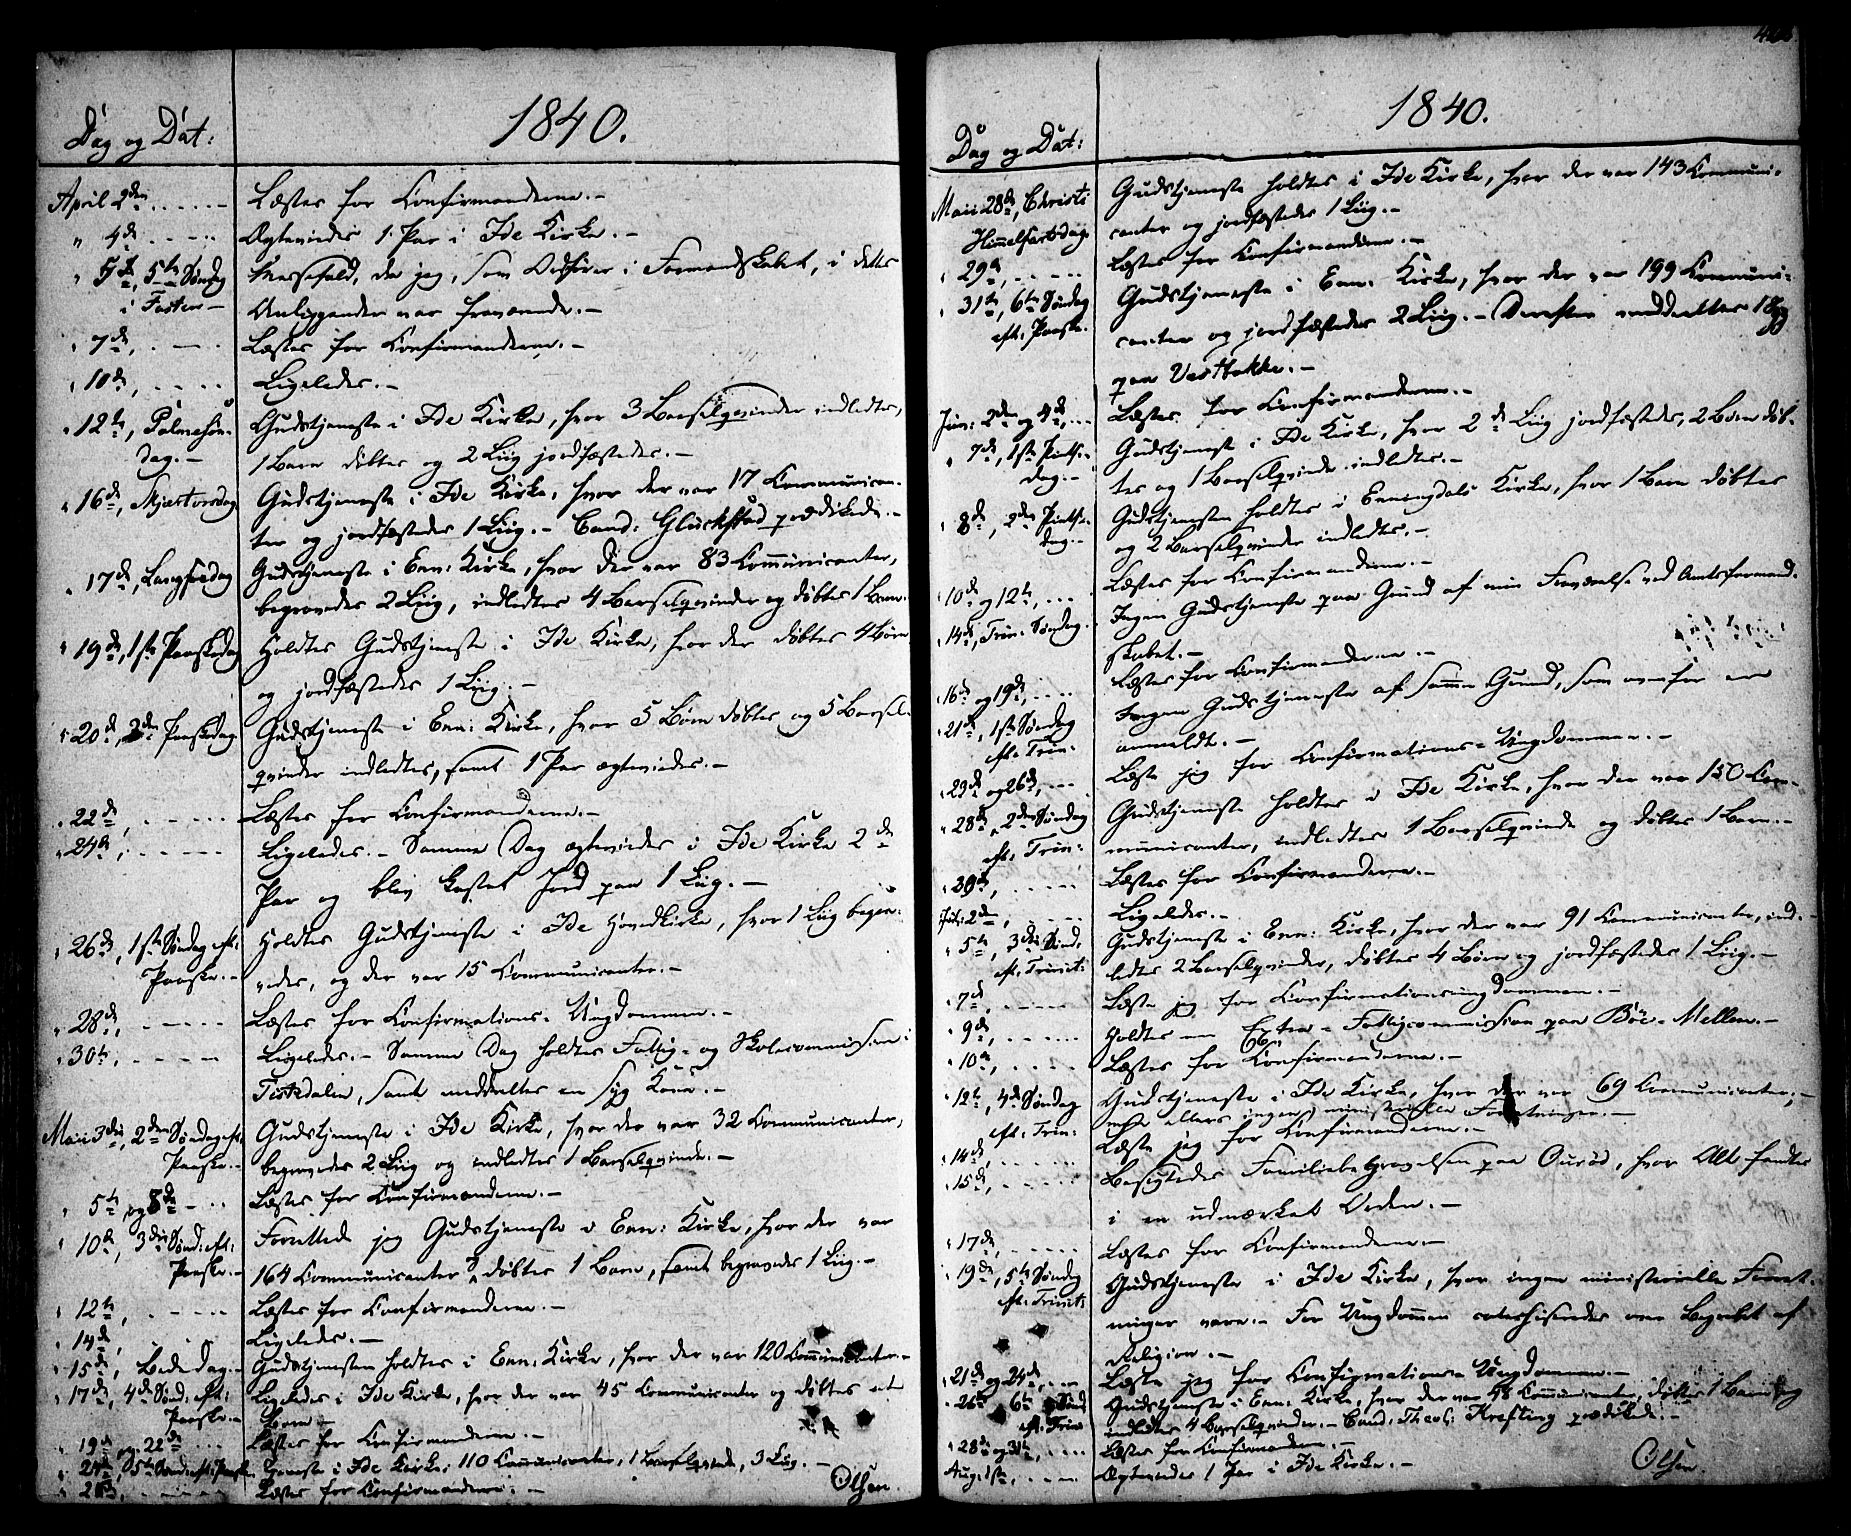 Dag og Dat:
1840.
April 2den
Læstes for Confirmanderne.-
" 4de
Ægteviedes 1 Par i Ide Kirke.-
" 5te, 5te Søndag
Messefald, da jeg, som Ordfører i Formandskabet, i dettes
i Fasten
Anliggender var fraværende.-
" 7de,
Læstes for Confirmanderne.-
" 10de,
Ligeledes.-
" 12te, Palmesøn-
Gudstjeneste i Ide Kirke, hvor 3 Barselqvinder indledtes,
dag.-
1 Barn döbtes og 2 Liig jordfæstedes.-
" 16de, Skjærtorsdag
Gudstjeneste i Ide Kirke, hvor der var 17 Communican-
ter og jordfæstedes 1 Liig.- Cand: Glückstad prædikede.-
" 17de, Langfredag
Gudstjeneste i Enn: Kirke, hvor der var 83 Communicanter,
begravedes 2 Liig, indledtes 4 Barselqvinder og döbtes 1 Barn.
" 19de, 1ste Paaskedag
Holdtes Gudstjeneste i Ide Kirke, hvor der döbtes 4 Börn
og jordfæstedes 1 Liig.-
" 20de, 2den Paaskedag
Gudstjeneste i Enn: Kirke, hvor 5 Börn döbtes og 5 Barsel-
qvinder indledtes, samt 1 Par ægteviedes.-
" 22de,
Læstes for Confirmanderne.-
" 24de,
Ligeledes.- Samme Dag ægteviedes i Ide Kirke 2de
Par og blev kastet Jord paa 1 Liig.-
" 26de, 1ste Søndag eft:
Holdtes Gudstjeneste i Ide Hovedkirke, hvor 1 Liig begra-
Paaske.-
vedes, og der var 15 Communicanter.-
" 28de,
Læstes for Confirmations-Ungdommen.-
" 30te,
Ligeledes.- Samme Dag holdtes Fattig- og Skolecommission i
Tistedalen, samt meddeeltes en syg Kone.-
Maii 3die, 2den Søndag eft:
Gudstjeneste i Ide Kirke, hvor der var 32 Communicanter,
Paaske.-
begravedes 2 Liig og indledtes 1 Barselqvinde.-
" 5te og 8de
Læstes for Confirmanderne.-
" 10de, 3die Sönd: eft:
Forrettede jeg Gudstjeneste i Enn: Kirke, hvor der var
Paaske.-
164 Communicanter & döbtes 1 Barn, samt begravedes 1 Liig.-
" 12te,
Læstes for Confirmanderne.-
" 14de,
Ligeledes.-
" 15de, Bededag.-
Gudstjenesten holdtes i Enn: Kirke, hvor der var 120 Communicanter.-
" 17de, 4de Sönd: eft:
Ligeledes i Ide Kirke, hvor der var 45 Communicanter og döbtes et
Paaske.-
Barn.-
" 19de og 22de
Læstes for Confirmanderne.-
" 24de, 5te Sönd: eft: Paaske.
Tjeneste i Ide Kirke, 110 Communicanter, 1 Barselqvinde, 3 Liig.-
Læstes for Confirmanderne.-
Olsen.
Dag og Dat:
1840.
Maii 28de, Christi
Gudstjeneste holdtes i Ide Kirke, hvor der var 143 Communi-
Himmelfartsdag.
canter og jordfæstedes 1 Liig.-
" 29de,
Læstes for Confirmanderne.-
" 31te, 6te Søndag
Gudstjeneste i Enn: Kirke, hvor der var 199 Communi-
eft: Paaske.
canter og jordfæstedes 2 Liig.- Derefter meddeeltes 1 Syg
paa Vestbakke.-
Jun: 2den og 4de,
Læstes for Confirmanderne.-
" 7de, 1ste Pintse-
Gudstjeneste i Ide Kirke, hvor 2de Liig jordfæstedes, 2 Börn döb-
dag.-
tes og 1 Barselqvinde indledtes.-
" 8de, 2den Pintse-
Gudstjenesten holdtes i Enningdals Kirke, hvor 1 Barn döbtes
dag.-
og 2 Barselqvinder indledtes.-
" 10de og 12te,
Læstes for Confirmanderne.-
" 14de, Trin: Søndag.
Ingen Gudstjeneste paa Grund af min Fraværelse ved Amtsformand-
skabet.-
16de og 19de,
Læstes for Confirmanderne.-
" 21de, 1ste Søndag
Ingen Gudstjeneste af samme Grund, som ovenfor er
eft: Trin:
anmeldt.-
" 23de og 26de,
Læste jeg for Confirmations-Ungdommen.-
" 28de, 2den Søndag
Gudstjeneste holdtes i Ide Kirke, hvor der var 150 Com-
eft: Trin:
municanter, indledtes 1 Barselqvinde og döbtes 1 Barn.-
" 30te,
Læstes for Confirmanderne.-
Juli 2den,
Ligeledes.-
" 5te, 3die Sönd:
Gudstjeneste i Enn: Kirke, hvor der var 91 Communicanter, ind-
eft: Trinit:
ledtes 2 Barselqvinder, döbtes 4 Börn og jordfæstedes 1 Liig.-
" 7de,
Læste jeg for Confirmationsungdommen.-
" 9de,
Holdtes Extra-Fattigcommission paa Böe-Mellem.-
" 10de,
Læstes for Confirmanderne.-
" 12te, 4de Søndag
Gudstjeneste i Ide Kirke, hvor der var 69 Communicanter,
eft: Trin:
men ellers ingen ministerielle Forretninger.-
" 14de,
Læste jeg for Confirmanderne.-
" 15de,
Besigtedes Familiebegravelsen paa Ouröd, hvor Alt fandtes
i en udmærket Orden.-
" 17de,
Læstes for Confirmanderne.-
" 19de, 5te Søndag
Gudstjeneste i Ide Kirke, hvor ingen ministerielle Forret-
eft: Trinit:
ninger vare.- For Ungdommen catechiseredes over Begrebet af
Religion.-
" 21de og 24de,
Læste jeg for Confirmations-Ungdommen.-
" 26de, 6te Sönd
Gudstjeneste i Enn: Kirke, hvor der var 58 Communicanter, döbtes 1 Barn og
eft: Trin
indledtes 4 Barselqvinder.- Cand: Theol: Krefting prædikede.-
" 28de og 31te,
Læstes for Confirmanderne.-
Aug: 1ste,
Ægteviedes 1 Par i Ide Kirke.-
Olsen.